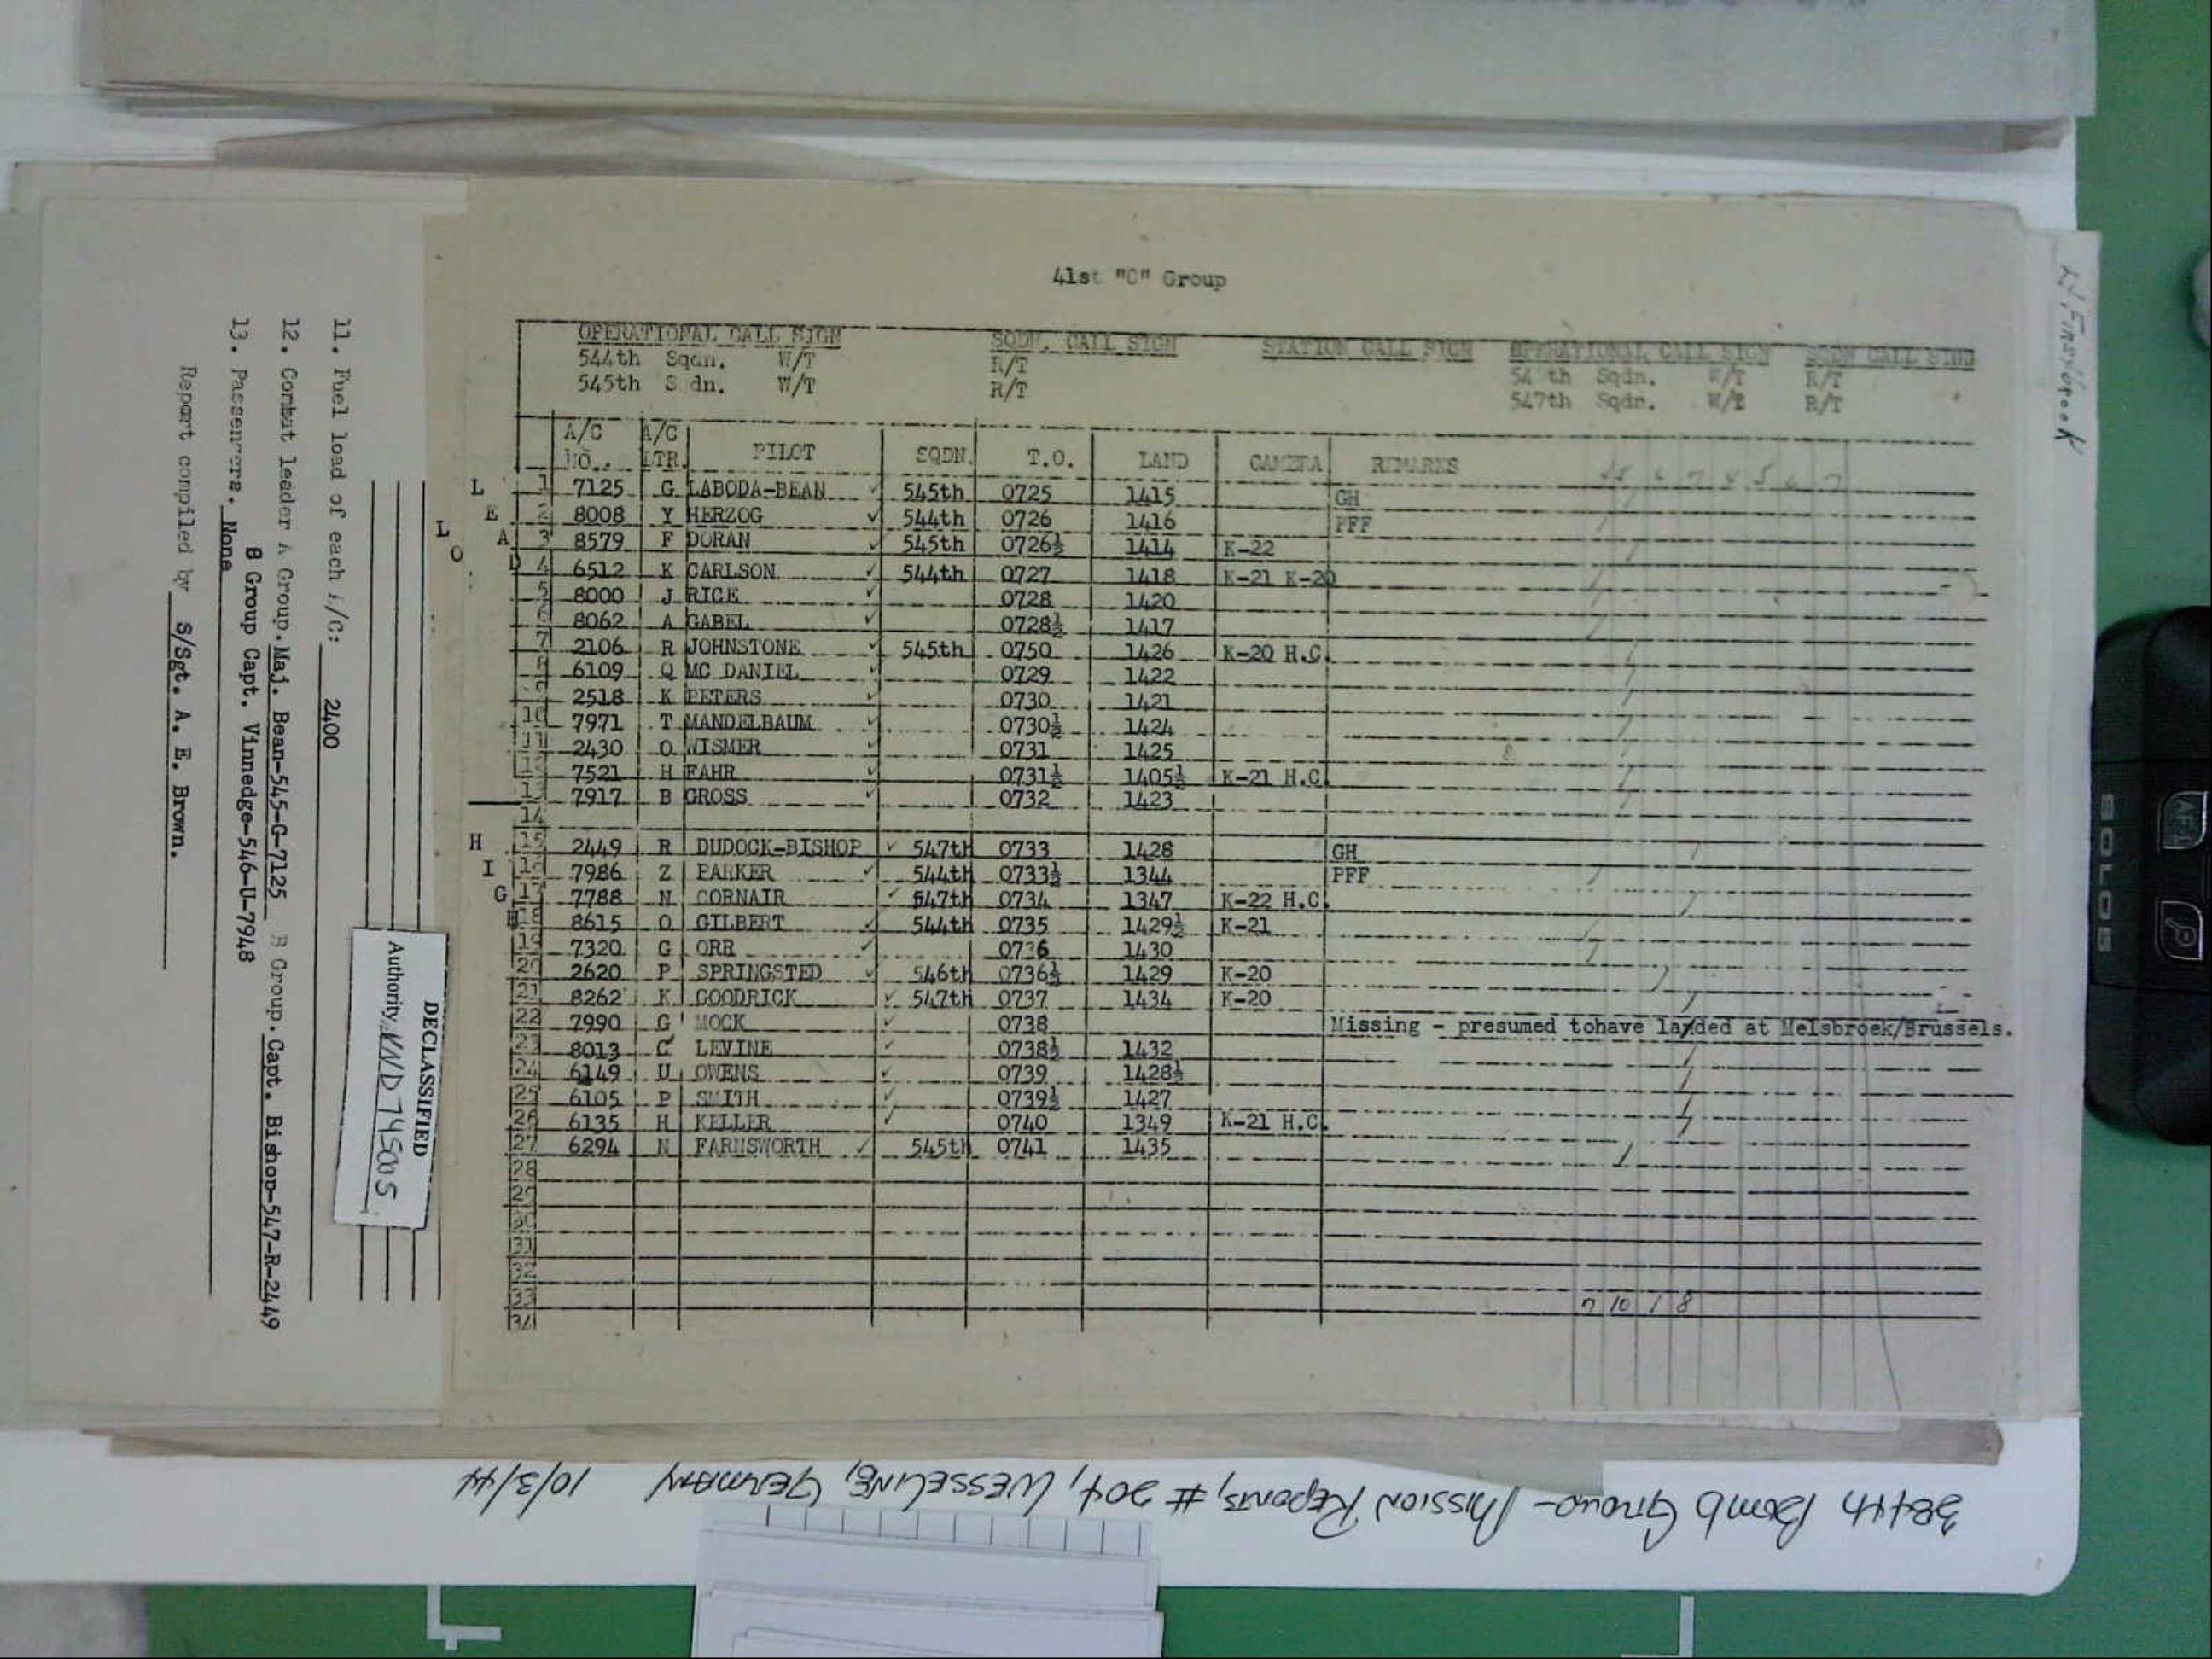 41st "C" Group
OPERATIONAL CALL SIGN SQDN. CALL SIGN STATION CALL SIGN OPERATIONAL CALL SIGN SQDN CALL SIGN
544th Sqdn. W/T R/T 54 th Sqdn. W/T R/T
545th S dn. W/T R/T 547th Sqdn. W/T R/T
A/C NO. A/C LTR. PILOT SQDN. T.O. LAND CAMERA REMARKS
L E A D
L O
1 7125 G LABODA-BEAN ✓ 545th 0725 1415 GH
2 8008 Y HERZOG ✓ 544th 0726 1416 PFF
3 8579 F DORAN ✓ 545th 0726½ 1414 K-22
4 6512 K CARLSON ✓ 544th 0727 1418 K-21 K-20
5 8000 J RICE ✓ 0728 1420
6 8062 A GABEL ✓ 0728½ 1417
7 2106 R JOHNSTONE ✓ 545th 0750 1426 K-20 H.C.
8 6109 Q MC DANIEL ✓ 0729 1422
9 2518 K PETERS ✓ 0730 1421
10 7971 T MANDELBAUM ✓ 0730½ 1424
11 2430 O WISMER ✓ 0731 1425
12 7521 H FAHR ✓ 0731½ 1405½ K-21 H.C.
13 7917 B GROSS ✓ 0732 1423
14
H I G H
15 2449 R DUDOCK-BISHOP ✓ 547th 0733 1428 GH
16 7986 Z PARKER ✓ 544th 0733½ 1344 PFF
17 7788 N CORNAIR ✓ 547th 0734 1347 K-22 H.C.
18 8615 O GILBERT ✓ 544th 0735 1429½ K-21
19 7320 G ORR ✓ 0736 1430
20 2620 P SPRINGSTED ✓ 546th 0736½ 1429 K-20
21 8262 K GOODRICK ✓ 547th 0737 1434 K-20
22 7990 G MOCK ✓ 0738 Missing - presumed tohave landed at Melsbroek/Brussels.
23 8013 C LEVINE ✓ 0738½ 1432
24 6149 U OWENS ✓ 0739 1428½
25 6105 P SMITH ✓ 0739½ 1427
26 6135 H KELLER ✓ 0740 1349 K-21 H.C.
27 6294 N FARNSWORTH ✓ 545th 0741 1435
28
29
30
31
32
33
34
7 10 1 8
11. Fuel load of each A/C: 2400
12. Combat leader A Group. Maj. Bean-545-G-7125 B Group. Capt. Bishop-547-R-2449
B Group Capt. Vinnedge-546-U-7948
13. Passengers. None
Report compiled by S/Sgt. A. E. Brown.
DECLASSIFIED
Authority NND 745005
384th Bomb Group - Mission Reports, #204, Wesseling, Germany 10/3/44
SOLOS
AF-L